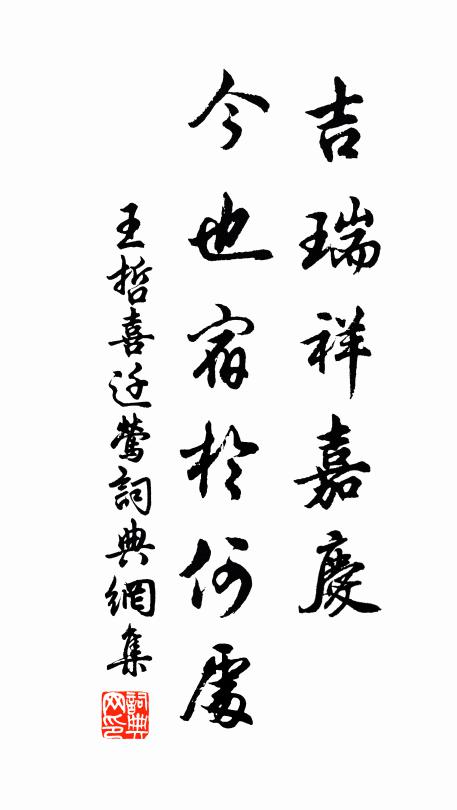 吉瑞祥嘉慶
今也宿於何處
王哲喜迁鶯詞典網集
詞典网印